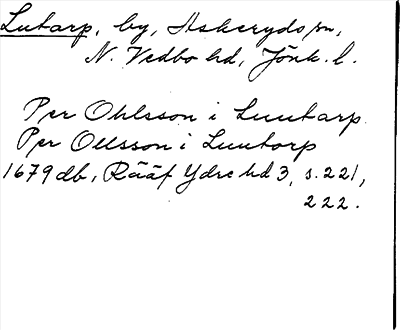 Lutarp, by, Askeryds sn,
N. Vedbo hd, Jönk. l.
Per Ohlsson i Luutarp.
Per Olsson i Luutorp
1679 db, Rääf Ydre hd 3, s. 221,
222.